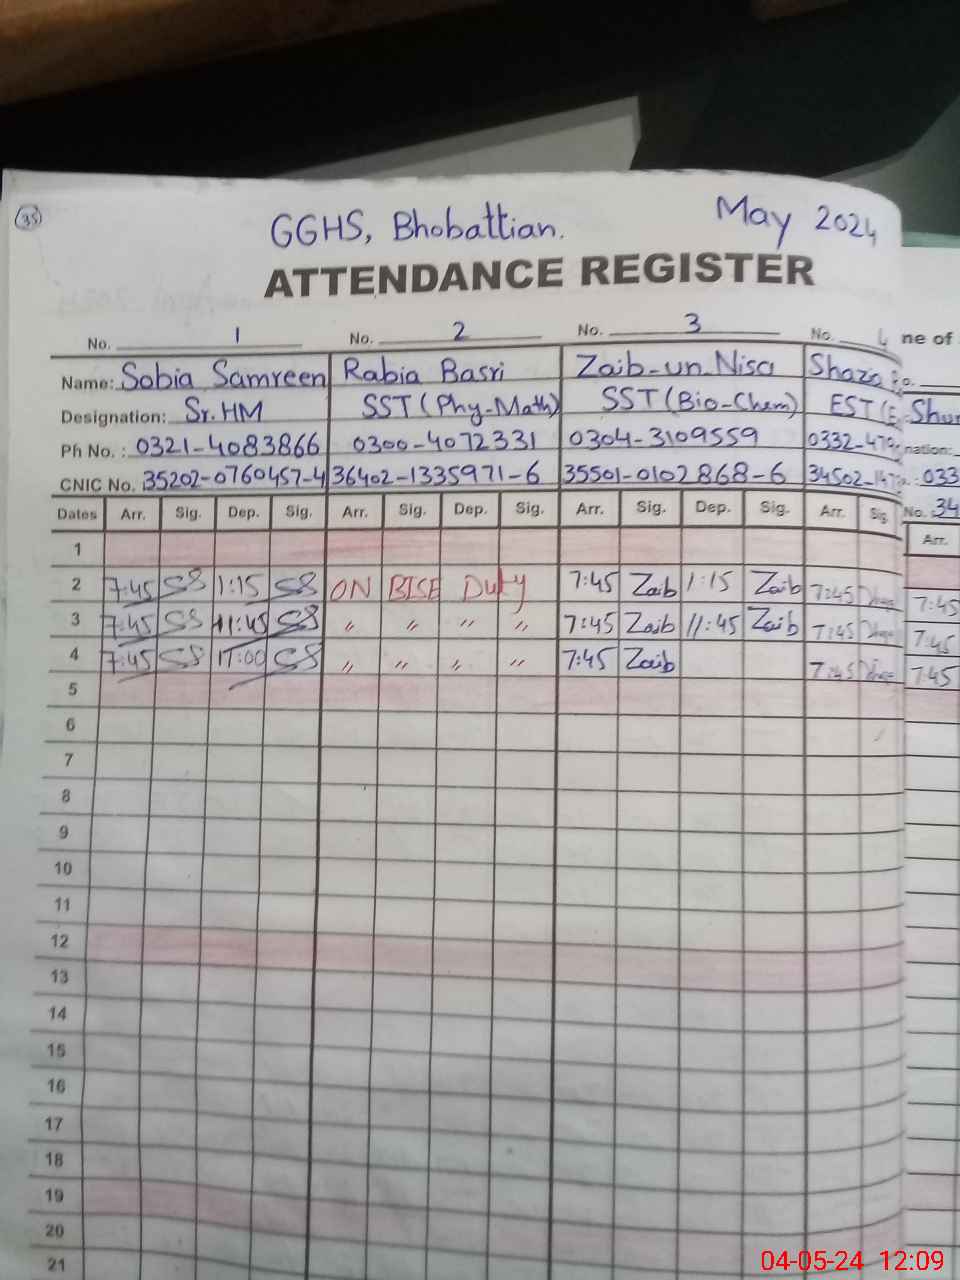 35
GGHS, Bhobattian. May 2024
ATTENDANCE REGISTER
No. 1 No. 2 No. 3 No. 4 ne of
Name: Sobia Samreen Rabia Basri Zaib-un-Nisa Shaza
Designation: Sr. HM SST (Phy-Math) SST (Bio-Chem) EST
Ph No. : 0321-4083866 0300-4072331 0304-3109559 0332 nation:
CNIC No. 35202-0760457-4 36402-1335971-6 35501-0102868-6 34502 033
Dates Arr. Sig. Dep. Sig. Arr. Sig. Dep. Sig. Arr. Sig. Dep. Sig. Arr. Sig. No. 34
Arr.
1
2 7:45 SS 1:15 SS ON BISE Duty 7:45 Zaib 1:15 Zaib 7:45 7:45
3 7:45 SS 11:45 SS " " " " 7:45 Zaib 11:45 Zaib 7:45 7:45
4 7:45 SS SS " " " " 7:45 Zaib 7:45 7:45
5
6
7
8
9
10
11
12
13
14
15
16
17
18
19
20
21
04-05-24 12:09